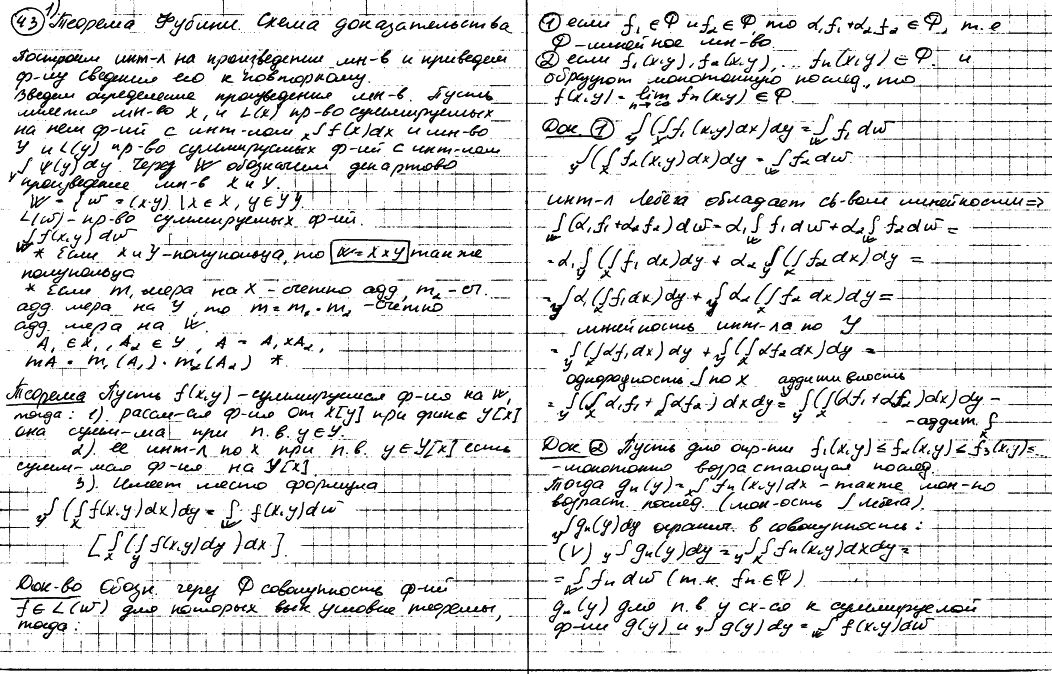 43 1) Теорема Фубини. Схема доказательства
Построим инт-л на произведении мн-в и приведем
ф-лу сведения его к повторному.
Введем определение произведения мн-в. Пусть
имеется мн-во X, и L(x) пр-во суммируемых
на нем ф-ий с инт-лом ₓ∫f(x)dx и мн-во
Y и L(y) пр-во суммируемых ф-ий с инт-лом
∫ψ(y)dy. Через W обозначим декартово
Y
произведение мн-в X и Y.
W = {w = (x,y) | x∈X, y∈Y}.
L(w) – пр-во суммируемых ф-ий.
∫f(x,y)dw
W
* Если X и Y – полукольца, то W=X×Y также
полукольца
* Если m₁ мера на X – счетно адд, m₂ – сч.
адд. мера на Y, то m = m₁·m₂ – счетно
адд. мера на W.
A₁∈X, A₂∈Y, A = A₁×A₂,
mA = m₁(A₁)·m₂(A₂) *
Теорема Пусть f(x,y) – суммируемая ф-ия на W,
тогда: 1). рассм-ся ф-ия от X[Y] при фикс Y[X]
она сумм-ма при п.в. y∈Y.
2). ее инт-л по x при п.в. y∈Y[X] есть
сумм-мая ф-ия на Y[X]
3). Имеет место формула
∫(∫f(x,y)dx)dy = ∫f(x,y)dw
Y X W
[∫(∫f(x,y)dy)dx].
X Y
Док-во Обозн. через Φ совокупность ф-ий
f∈L(w) для которых вып условие теоремы,
тогда:
① если f₁∈Φ и f₂∈Φ, то α₁f₁+α₂f₂∈Φ, т.е
Φ – линейное мн-во.
② если f₁(x,y), f₂(x,y), ... fₙ(x,y)∈Φ. и
образуют монотонную послед., то
f(x,y) = lim fₙ(x,y)∈Φ.
n→∞
Док ① ∫(∫f₁(x,y)dx)dy = ∫f₁dw
Y X W
∫(∫f₂(x,y)dx)dy = ∫f₂dw.
Y X W
инт-л Лебега обладает св-вом линейности =>
∫(α₁f₁+α₂f₂)dw = α₁∫f₁dw + α₂∫f₂dw =
W W W
= α₁∫(∫f₁dx)dy + α₂∫(∫f₂dx)dy =
Y X Y X
= ∫α(∫f₁dx)dy + ∫α₂(∫f₂dx)dy =
Y X Y X
линейность инт-ла по Y
= ∫(∫αf₁dx)dy + ∫(∫αf₂dx)dy =
Y X Y X
однородность ∫ по X аддитивность
= ∫(∫α₁f₁+∫αf₂)dxdy = ∫(∫(αf₁+αf₂)dx)dy –
Y X X Y X
– аддит. ∫
X
Док ② Пусть для опр-ти f₁(x,y)≤f₂(x,y)≤f₃(x,y)=
– монотонно возрастающая послед.
Тогда gₙ(y) = ₓ∫fₙ(x,y)dx – также мон-но
возраст. послед. (мон-ость ∫ Лебега).
∫gₙ(y)dy огранич. в совокупности:
Y
(V) ∫gₙ(y)dy = ∫∫fₙ(x,y)dxdy =
Y Y X
= ∫fₙdw (т.к. fₙ∈Φ).
W
gₙ(y) для п.в. y сх-ся к суммируемой
ф-ии g(y) и ∫g(y)dy = ∫f(x,y)dw
Y W